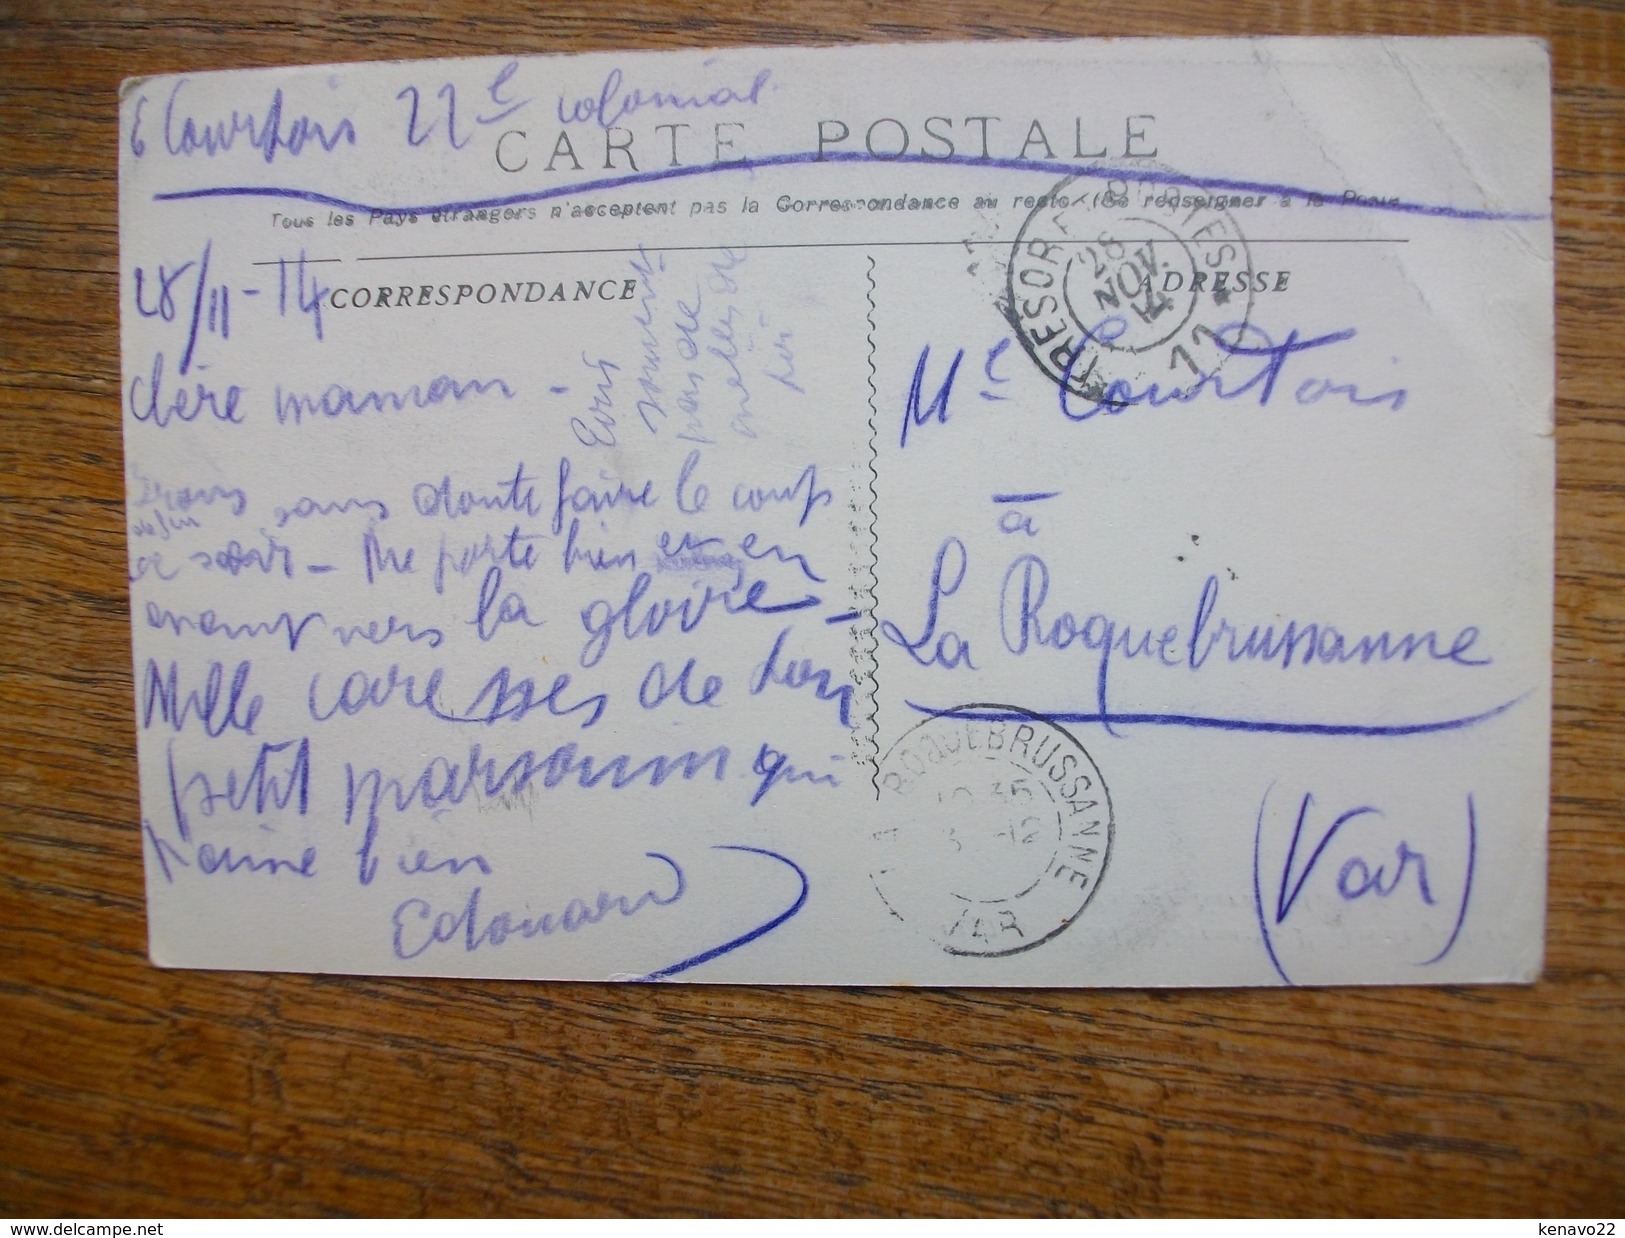 E Courtois 22e colonial
CARTE POSTALE
Tous les Pays étrangers n'acceptent pas la Correspondance au recto (Se renseigner à la Poste
CORRESPONDANCE
ADRESSE
TRESOR ET POSTES
28
NOV.
14
* 11 *
28/11-14
Chère maman -
Ecris
souvent
pas de
de
Irons sans doute faire le coup
ce soir - Me porte bien et en
avant vers la gloire -
Mille caresses de ton
petit marsouin qui
t'aime bien
Edouard
Me Courtois
à
La Roquebrussanne
(Var)
LA ROQUEBRUSSANNE
VAR
delcampe.net
kenavo22